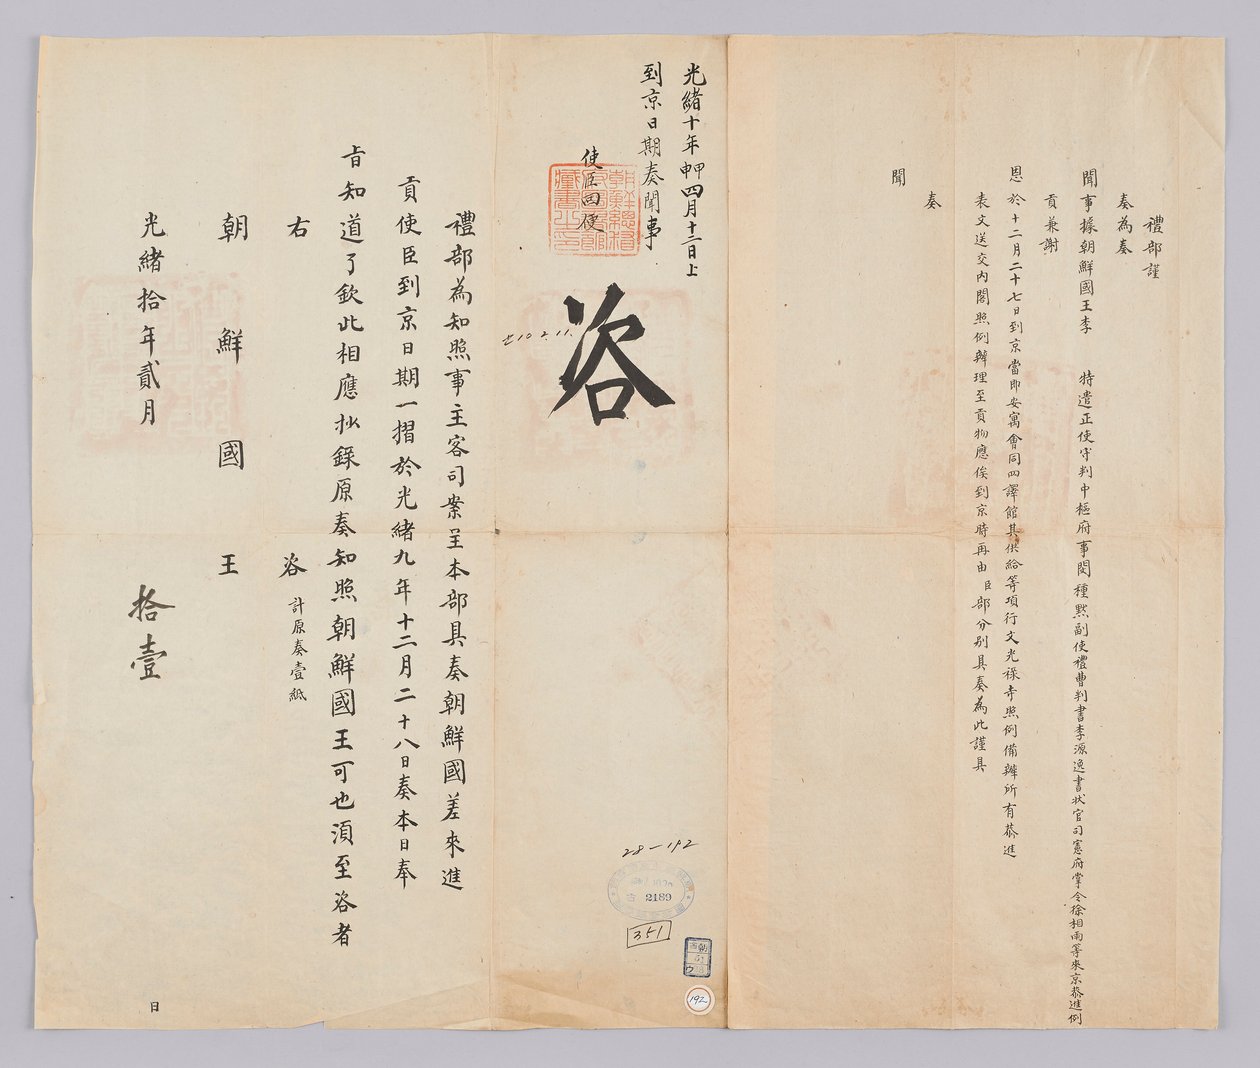 禮部謹
奏為奏
聞事據朝鮮國王李 特遣正使守判中樞府事閔種默副使禮曹判書李源逸書狀官司憲府掌令徐相雨等來京恭進例
貢兼謝
恩於十二月二十七日到京當即安寓會同四譯館其供給等項行文光祿寺照例備辦所有恭進
表文送交內閣照例辦理至貢物應俟到京時再由臣部分別具奏為此謹具
奏
聞
光緒十年甲申四月十二日上
到京日期奏聞事
使臣回便
朝鮮總督
府圖書館
藏書之印
咨
七10.2.11.
28-192
2189
351
192
禮部為知照事主客司案呈本部具奏朝鮮國差來進
貢使臣到京日期一摺於光緒九年十二月二十八日奏本日奉
旨知道了欽此相應抄錄原奏知照朝鮮國王可也須至咨者
右 咨 計原奏壹紙
朝鮮國王
光緒拾年貳月 日
拾壹